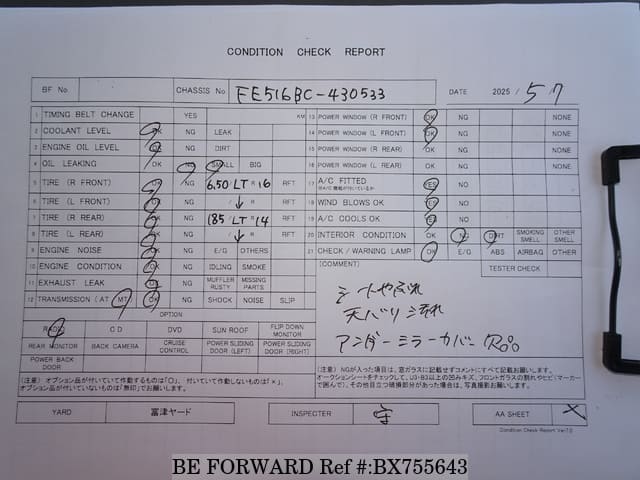 CONDITION CHECK REPORT
BF No. CHASSIS No FE516BC-430533 DATE 2025 / 5 7
1 TIMING BELT CHANGE YES KM
2 COOLANT LEVEL OK NG LEAK
3 ENGINE OIL LEVEL OK NG DIRT
4 OIL LEAKING OK NG SMALL BIG
5 TIRE (R FRONT) OK NG 6.50 / LT R 16 RFT
6 TIRE (L FRONT) OK NG / ↓ R RFT
7 TIRE (R REAR) OK NG 185 / LT R 14 RFT
8 TIRE (L REAR) OK NG / ↓ R RFT
9 ENGINE NOISE OK NG E/G OTHERS
10 ENGINE CONDITION OK NG IDLING SMOKE
11 EXHAUST LEAK OK NG MUFFLER RUSTY MISSING PARTS
12 TRANSMISSION (AT MT) OK NG SHOCK NOISE SLIP
OPTION
RADIO CD DVD SUN ROOF FLIP DOWN MONITOR
REAR MONITOR BACK CAMERA CRUISE CONTROL POWER SLIDING DOOR (LEFT) POWER SLIDING DOOR (RIGHT)
POWER BACK DOOR
(注意) オプション品が付いていて作動するものは「○」、付いていて作動しないものは「×」、
オプション品が付いていないものは「無印」でお願いします。
13 POWER WINDOW (R FRONT) OK NG NONE
14 POWER WINDOW (L FRONT) OK NG NONE
15 POWER WINDOW (R REAR) OK NG NONE
16 POWER WINDOW (L REAR) OK NG NONE
17 A/C FITTED YES NO
18 WIND BLOWS OK YES NO
19 A/C COOLS OK YES NO
20 INTERIOR CONDITION OK NG DIRT SMOKING SMELL OTHER SMELL
21 CHECK / WARNING LAMP OK E/G ABS AIRBAG OTHER
(COMMENT) TESTER CHECK
シートやぶれ
天バリ汚れ
アンダーミラーカバー
(注意) NGが入った項目は、窓ガラスに記載せずコメントにすべて記載お願いします。
オークションシートチェックして、U3・B3以上の凹みキズ、フロントガラスの割れやヒビ(マーカー
で囲んで)、その他目立つ破損部分があった場合は、写真撮影お願いします。
YARD 富津ヤード INSPECTER 守 AA SHEET ×
Condition Check Report Ver7.0
BE FORWARD Ref #:BX755643